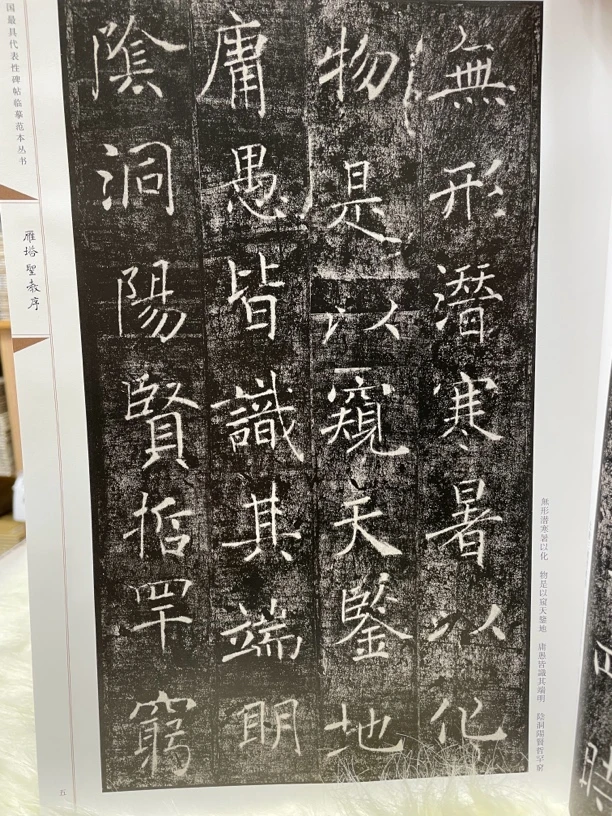 無形潛寒暑以化
物是以窺天鑒地
庸愚皆識其端明
陰洞陽賢哲罕窮
無形潛寒暑以化 物是以窺天鑒地 庸愚皆識其端明 陰洞陽賢哲罕窮
国最具代表性碑帖临摹范本丛书
雁塔聖教序
五
時